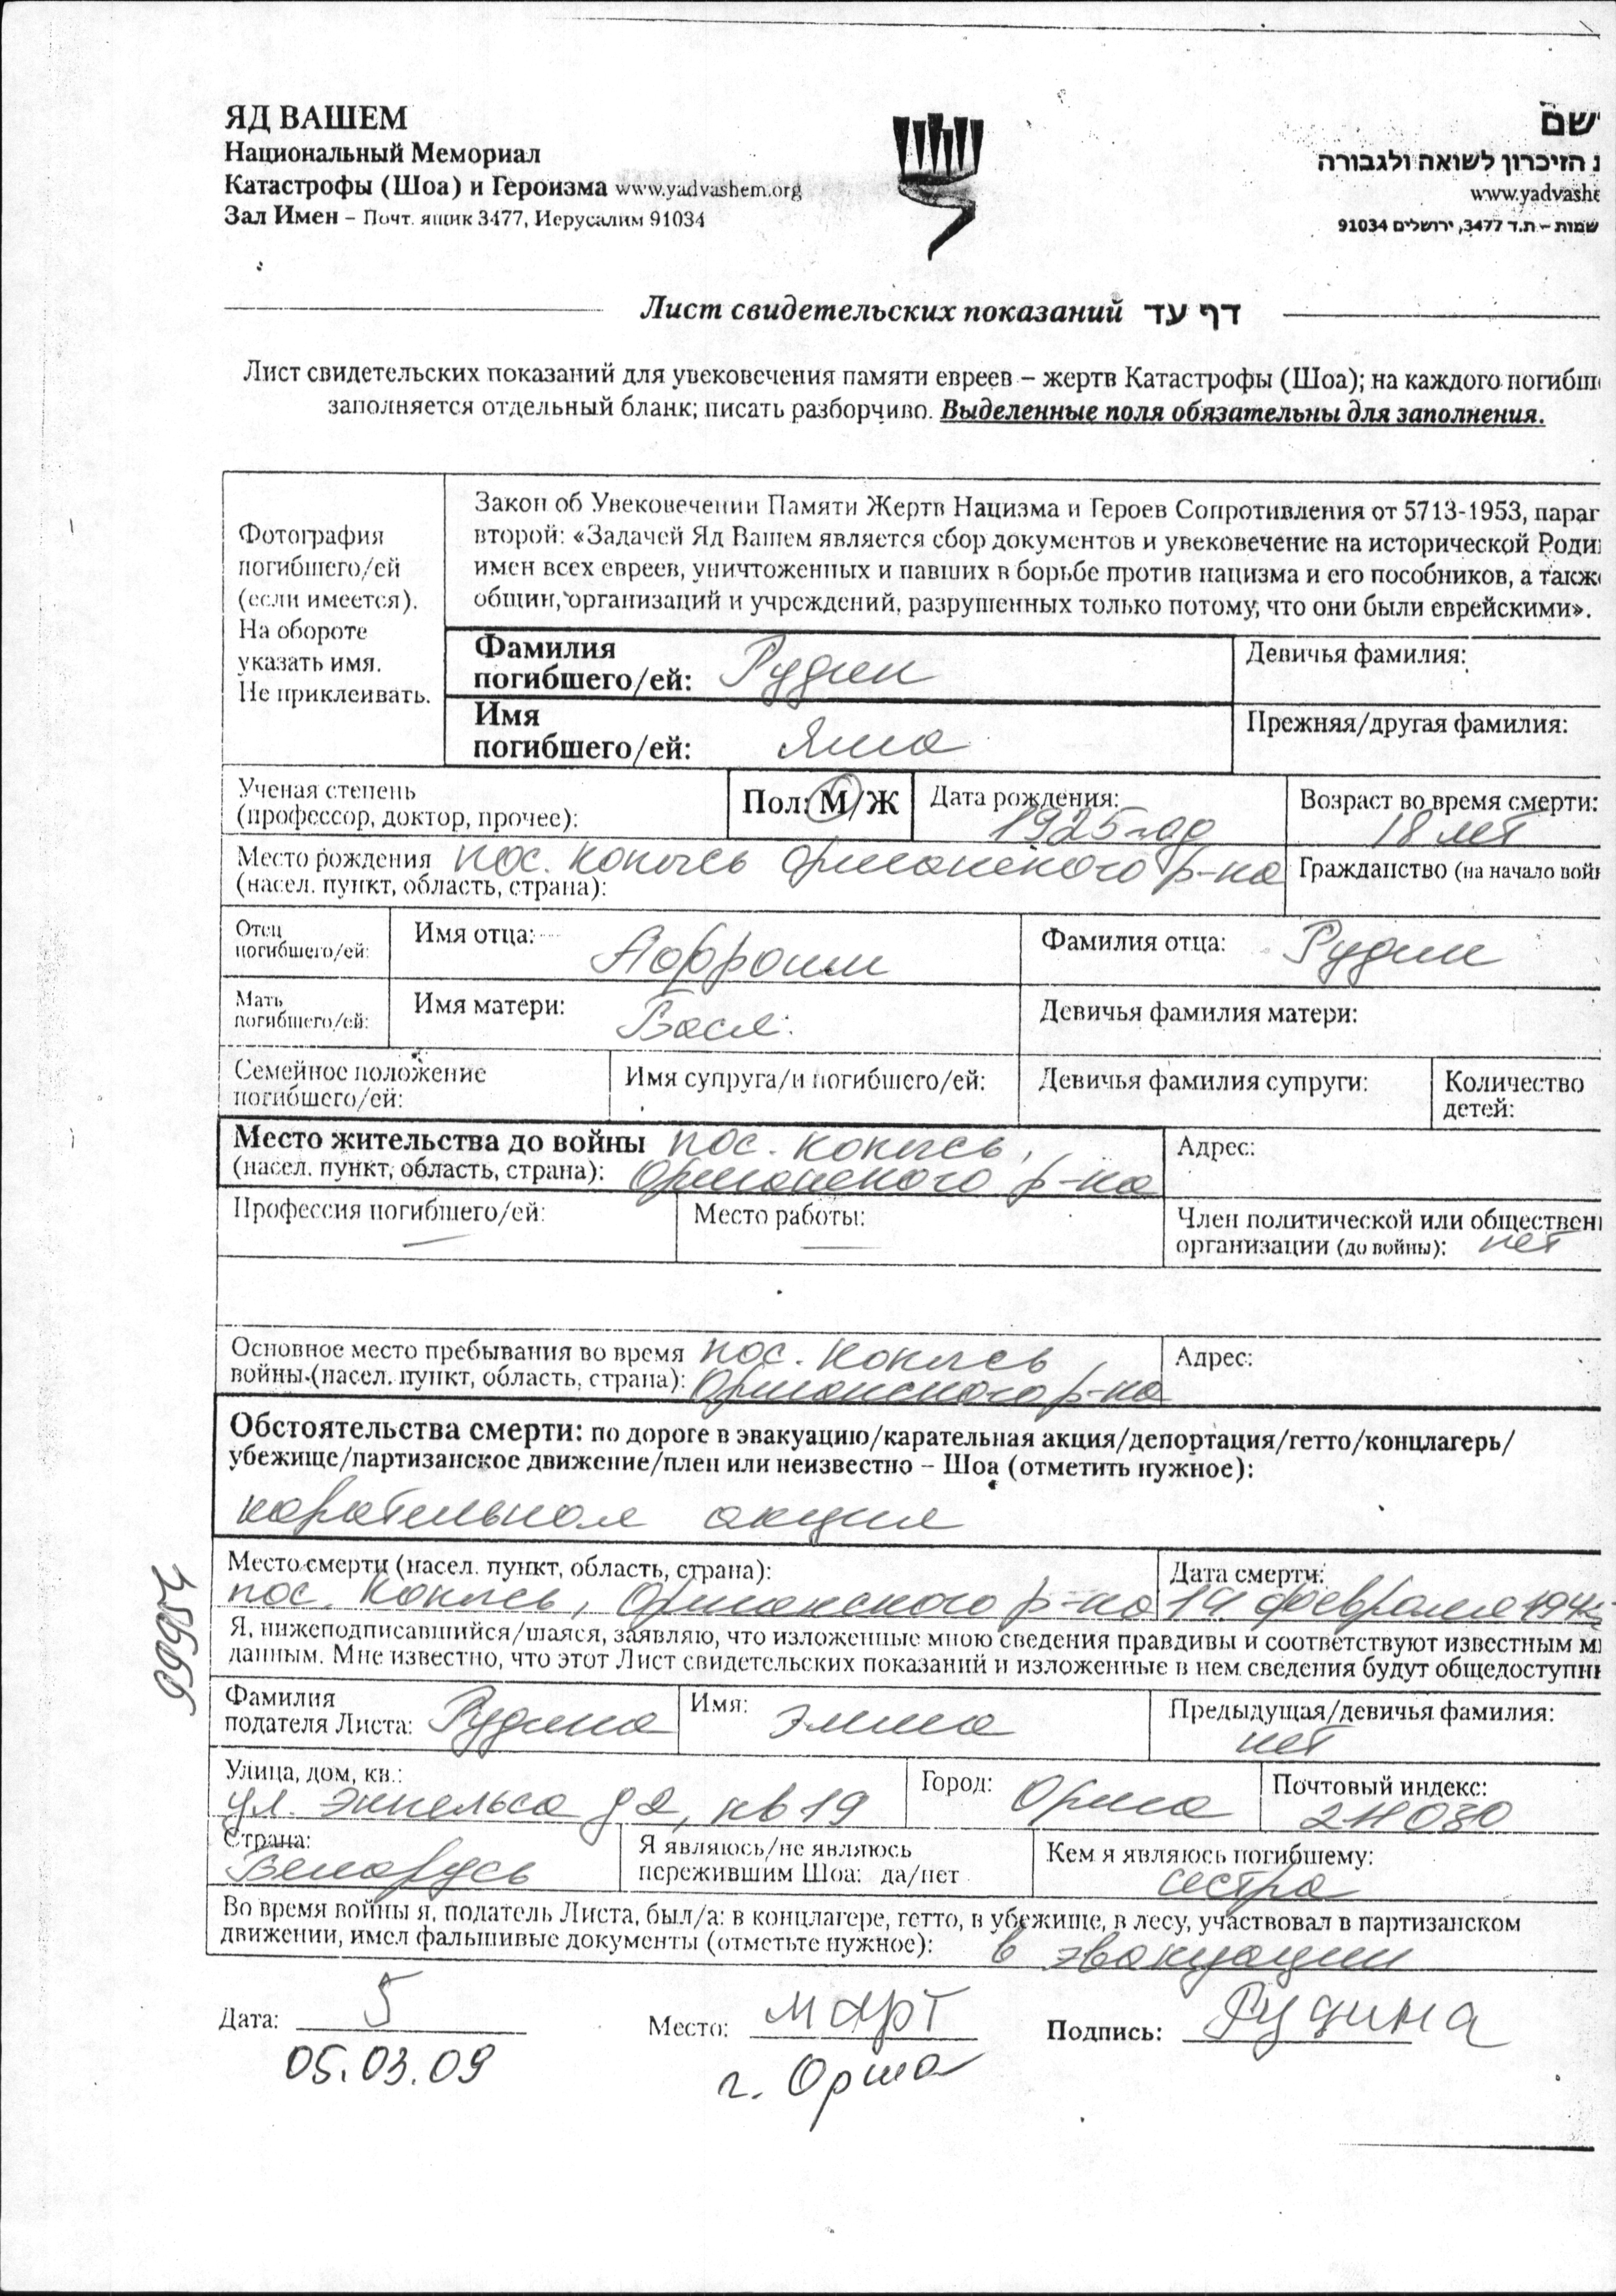 ЯД ВАШЕМ
Национальный Мемориал
Катастрофы (Шоа) и Героизма www.yadvashem.org
Зал Имен – Почт. ящик 3477, Иерусалим 91034
שם
הזיכרון לשואה ולגבורה
www.yadvashe
שמות – ת.ד 3477, ירושלים 91034
Лист свидетельских показаний דף עד
Лист свидетельских показаний для увековечения памяти евреев – жертв Катастрофы (Шоа); на каждого погибш
заполняется отдельный бланк; писать разборчиво. Выделенные поля обязательны для заполнения.
Фотография
погибшего/ей
(если имеется).
На обороте
указать имя.
Не приклеивать.
Закон об Увековечении Памяти Жертв Нацизма и Героев Сопротивления от 5713-1953, параг
второй: «Задачей Яд Вашем является сбор документов и увековечение на исторической Роди
имен всех евреев, уничтоженных и павших в борьбе против нацизма и его пособников, а такж
общин, организаций и учреждений, разрушенных только потому, что они были еврейскими».
Фамилия
погибшего/ей: Рудин
Девичья фамилия:
Имя
погибшего/ей: Яша
Прежняя/другая фамилия:
Ученая степень
(профессор, доктор, прочее):
Пол: М/Ж
Дата рождения:
1925 год
Возраст во время смерти:
18 лет
Место рождения пос. Копысь Оршанского р-на
(насел. пункт, область, страна):
Гражданство (на начало вой
Отец
погибшего/ей:
Имя отца:
Аофроим
Фамилия отца: Рудин
Мать
погибшего/ей:
Имя матери:
Бася
Девичья фамилия матери:
Семейное положение
погибшего/ей:
Имя супруга/и погибшего/ей:
Девичья фамилия супруги:
Количество
детей:
Место жительства до войны пос. Копысь,
(насел. пункт, область, страна): Оршанского р-на
Адрес:
Профессия погибшего/ей:
—
Место работы:
—
Член политической или обществен
организации (до войны): нет
Основное место пребывания во время пос. Копысь,
войны (насел. пункт, область, страна): Оршанского р-на
Адрес:
Обстоятельства смерти: по дороге в эвакуацию/карательная акция/депортация/гетто/концлагерь/
убежище/партизанское движение/плен или неизвестно – Шоа (отметить нужное):
карательная акция
Место смерти (насел. пункт, область, страна):
пос. Копысь, Оршанского р-на
Дата смерти:
14 февраля
Я, нижеподписавшийся/шаяся, заявляю, что изложенные мною сведения правдивы и соответствуют известным м
данным. Мне известно, что этот Лист свидетельских показаний и изложенные в нем сведения будут общедоступн
Фамилия
подателя Листа: Рудина
Имя: Элина
Предыдущая/девичья фамилия:
нет
Улица, дом, кв.:
ул. Энгельса д 2, кв 19
Город: Орша
Почтовый индекс:
211030
Страна:
Беларусь
Я являюсь/не являюсь
пережившим Шоа: да/нет
Кем я являюсь погибшему:
сестра
Во время войны я, податель Листа, был/а: в концлагере, гетто, в убежище, в лесу, участвовал в партизанском
движении, имел фальшивые документы (отметьте нужное): в эвакуации
Дата: 5
Место: март
Подпись: Рудина
05.03.09
г. Орша